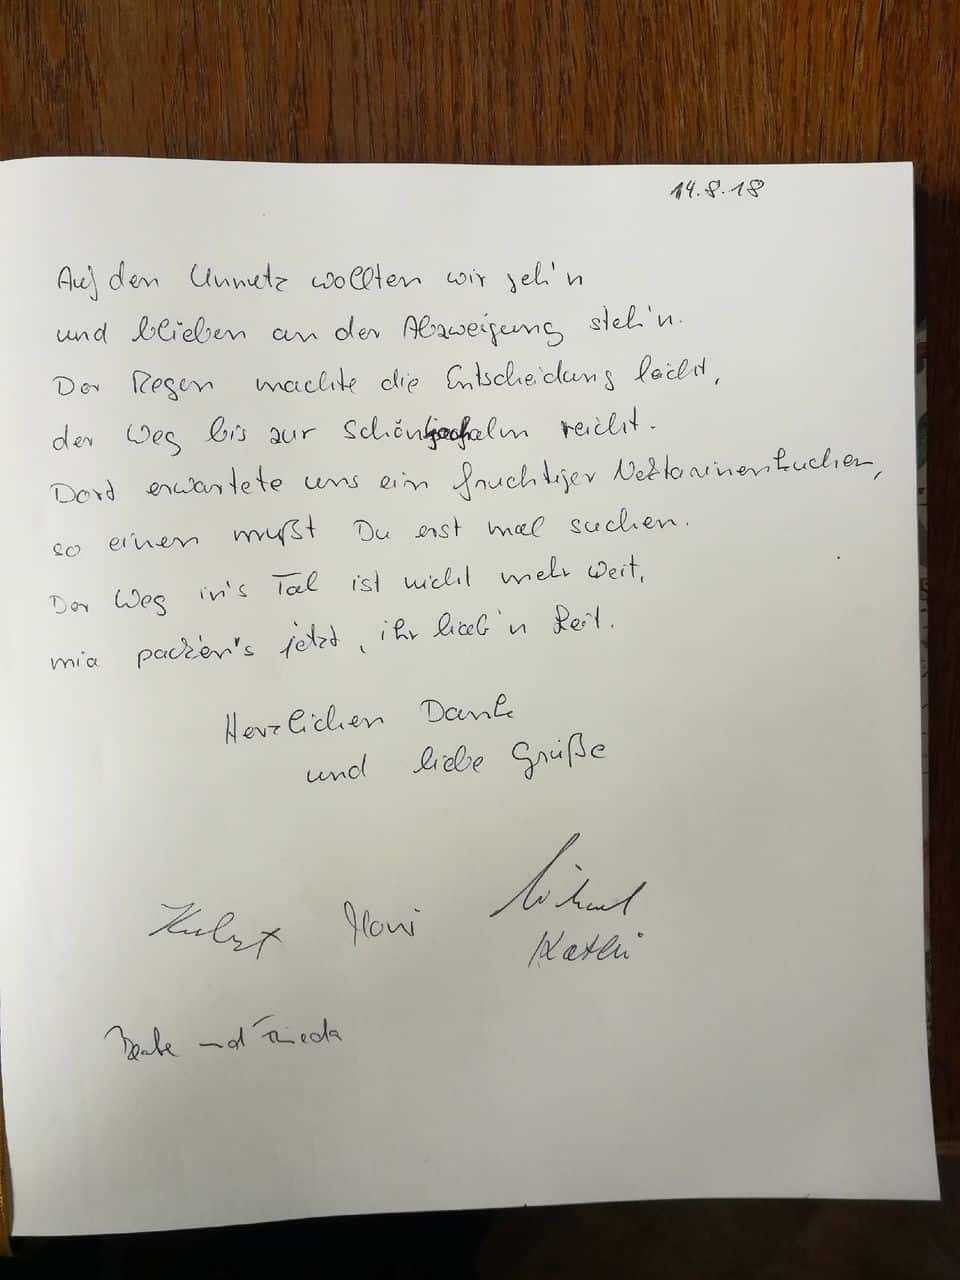 14.8.18
Auf den Unnutz wollten wir geh'n
und blieben an der Abzweigung steh'n.
Der Regen machte die Entscheidung leicht,
der Weg bis zur Schönjochalm reicht.
Dort erwartete uns ein fruchtiger Nektarinenkuchen,
so einen mußt Du erst mal suchen.
Der Weg in's Tal ist nicht mehr weit,
mia packen's jetzt, ihr lieb'n Leit.
Herzlichen Dank
und liebe Grüße
Moni Michael
Kathi
Beate und Frieda